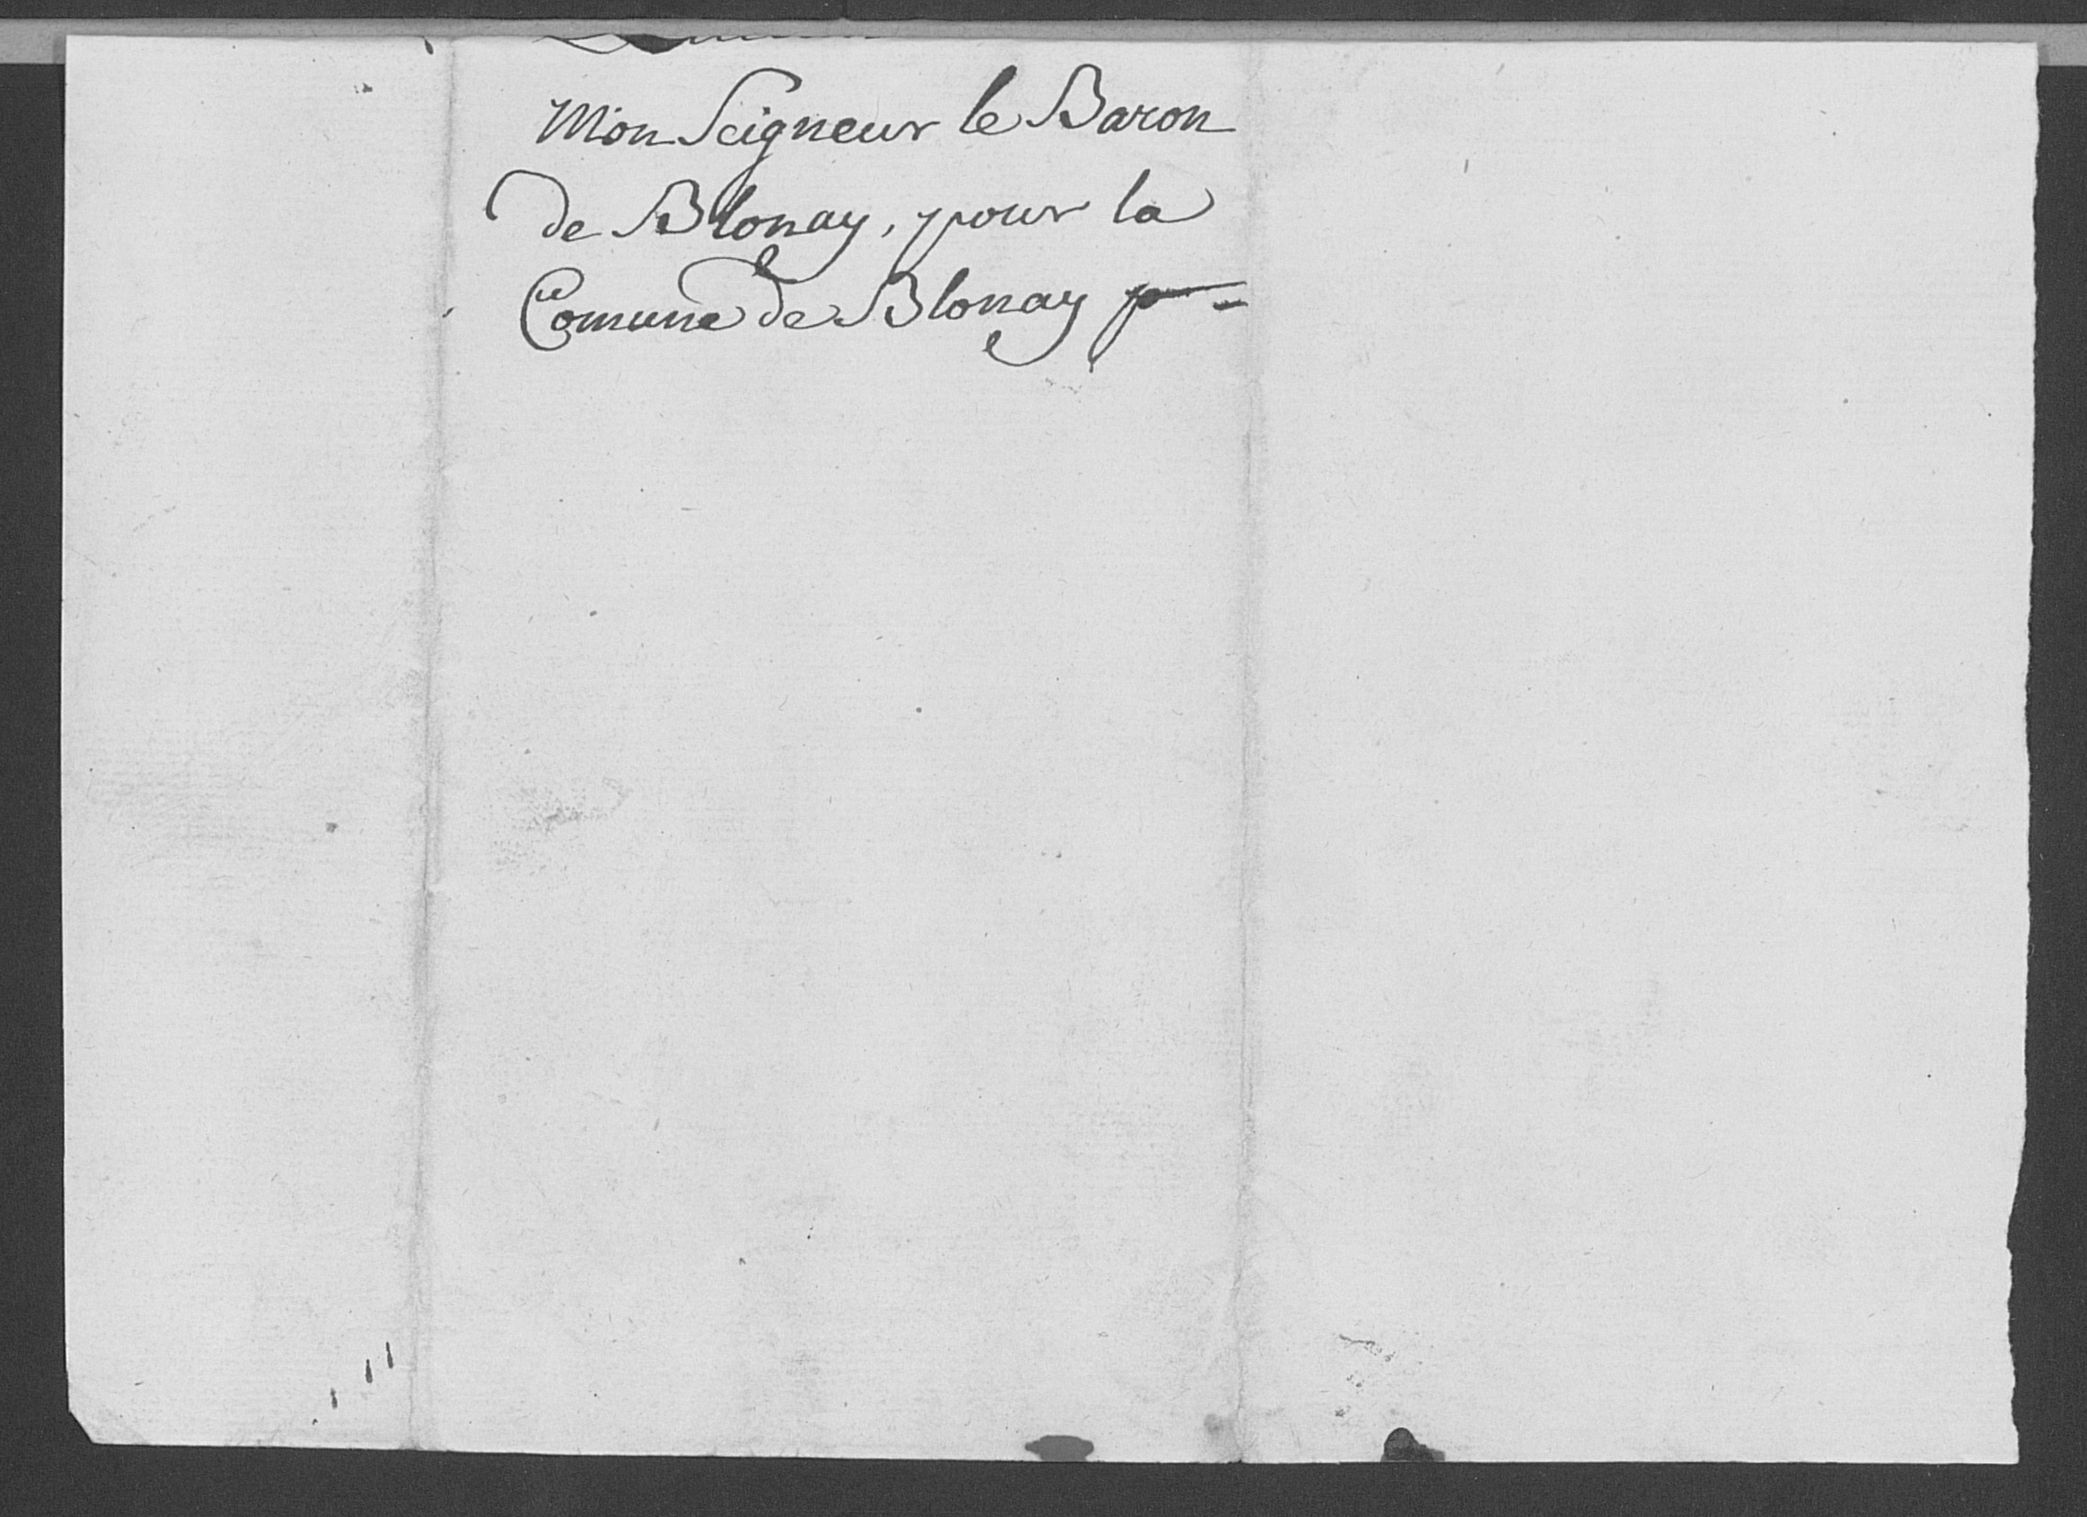 Mon Seigneur le Baron
de Blonay, pour la
Comune de Blonay